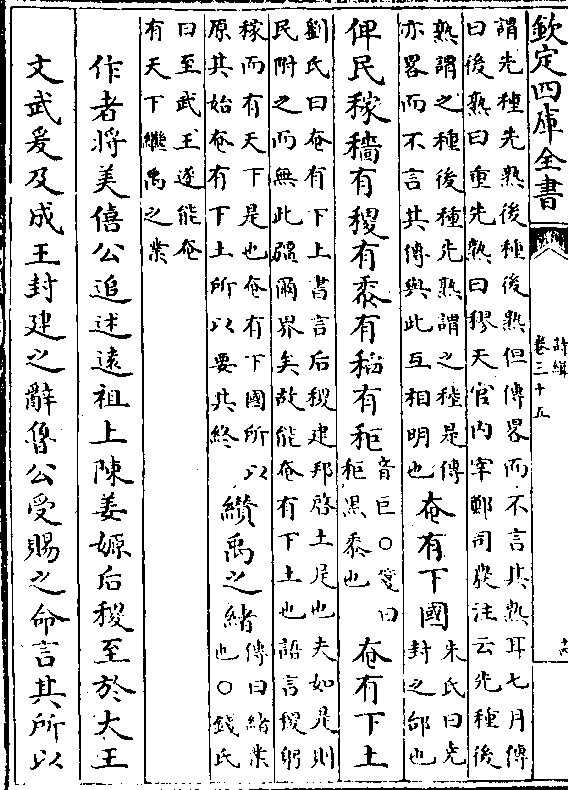 欽定四庫全書
詩緝
卷三十五
謂先種先熟後種後熟但傳畧而不言其熟耳七月傳
曰後熟曰重先熟曰穋天官内宰鄭司農注云先種後
熟謂之穜後種先熟謂之稑是傳
亦畧而不言其傳與此互相明也
奄有下國
朱氏曰先
封之邰也
俾民稼穡有稷有黍有稻有秬
音巨○箋曰
秬黑黍也
奄有下土
劉氏曰奄有下上書言后稷建邦啓土是也夫如是則
民附之而無此疆爾界矣故能奄有下土也語言稷躬
稼而有天下是也奄有下國所以
原其始奄有下土所以要其終
纘禹之緒
傳曰緒業
也○錢氏
曰至武王遂能奄
有天下纘禹之業
作者將美僖公追述遠祖上陳姜嫄后稷至於大王
文武爰及成王封建之辭魯公受賜之命言其所以